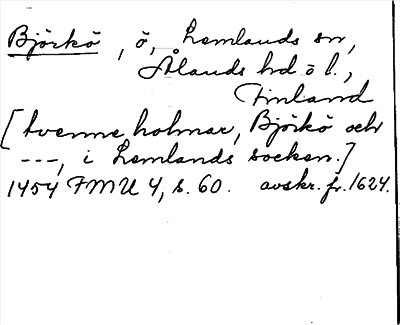 Björkö, ö, Lemlands sn,
Ålands hd o l.,
Finland
[tvenne holmar, Björkö och
---, i Lemlands socken.]
1454 FMU 4, s. 60. avskr. fr. 1624.